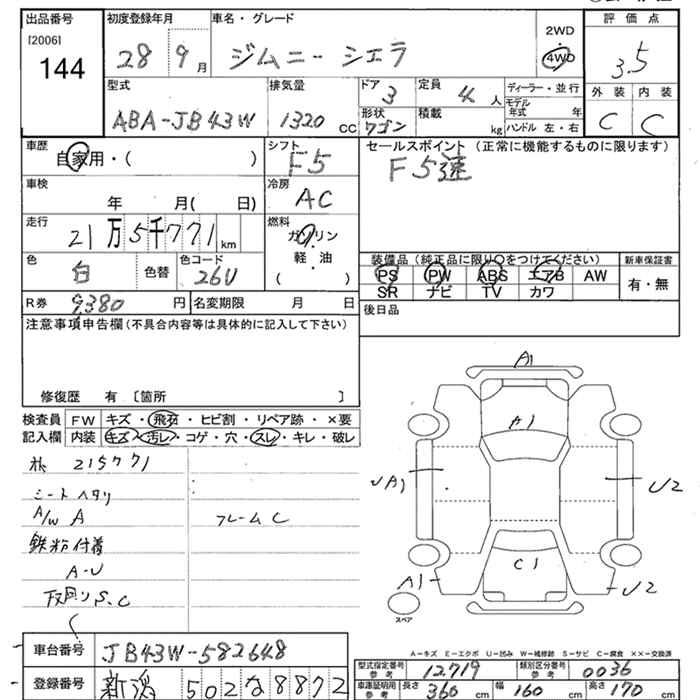 出品番号 [2006] 144
初度登録年月 28 9月
車名・グレード ジムニーシエラ
2WD 4WD
評価点 3.5
外装 C 内装 C
型式 ABA-JB43W
排気量 1320 CC
ドア 3
形状 ワゴン
定員 4人
積載 kg
ディーラー・並行
モデル年式 年
ハンドル 左・右
車歴 自家用・( )
シフト F5
セールスポイント (正常に機能するものに限ります)
F5速
車検 年 月( 日)
冷房 AC
走行 21万5千771 km
燃料 ガソリン 軽・油 ( )
色 白 色替 色コード 26U
装備品 (純正品に限り○をつけてください)
PS PW ABS エアB AW
SR ナビ TV カワ
新車保証書 有・無
R券 9380円 名変期限 月 日
後日品
注意事項申告欄 (不具合内容等は具体的に記入して下さい)
修復歴 有 〔箇所 〕
検査員記入欄
FW キズ・飛石・ヒビ割・リペア跡・×要
内装 キズ・汚レ・コゲ・穴・スレ・キレ・破レ
215771
シートヘタリ
A/W A
フレームC
鉄粉付着
A-U
下回りS.C
A1
A1
UA1
U2
C1
A1
U2
スペア
A-キズ E-エクボ U-凹み W-補修跡 S-サビ C-腐食 ××-交換済
車台番号 JB43W-582648
登録番号 新潟 502 な 8872
型式指定番号 参考 12719
類別区分番号 参考 0036
車庫証明用 参考 長さ 360 cm 幅 160 cm 高さ 170 cm